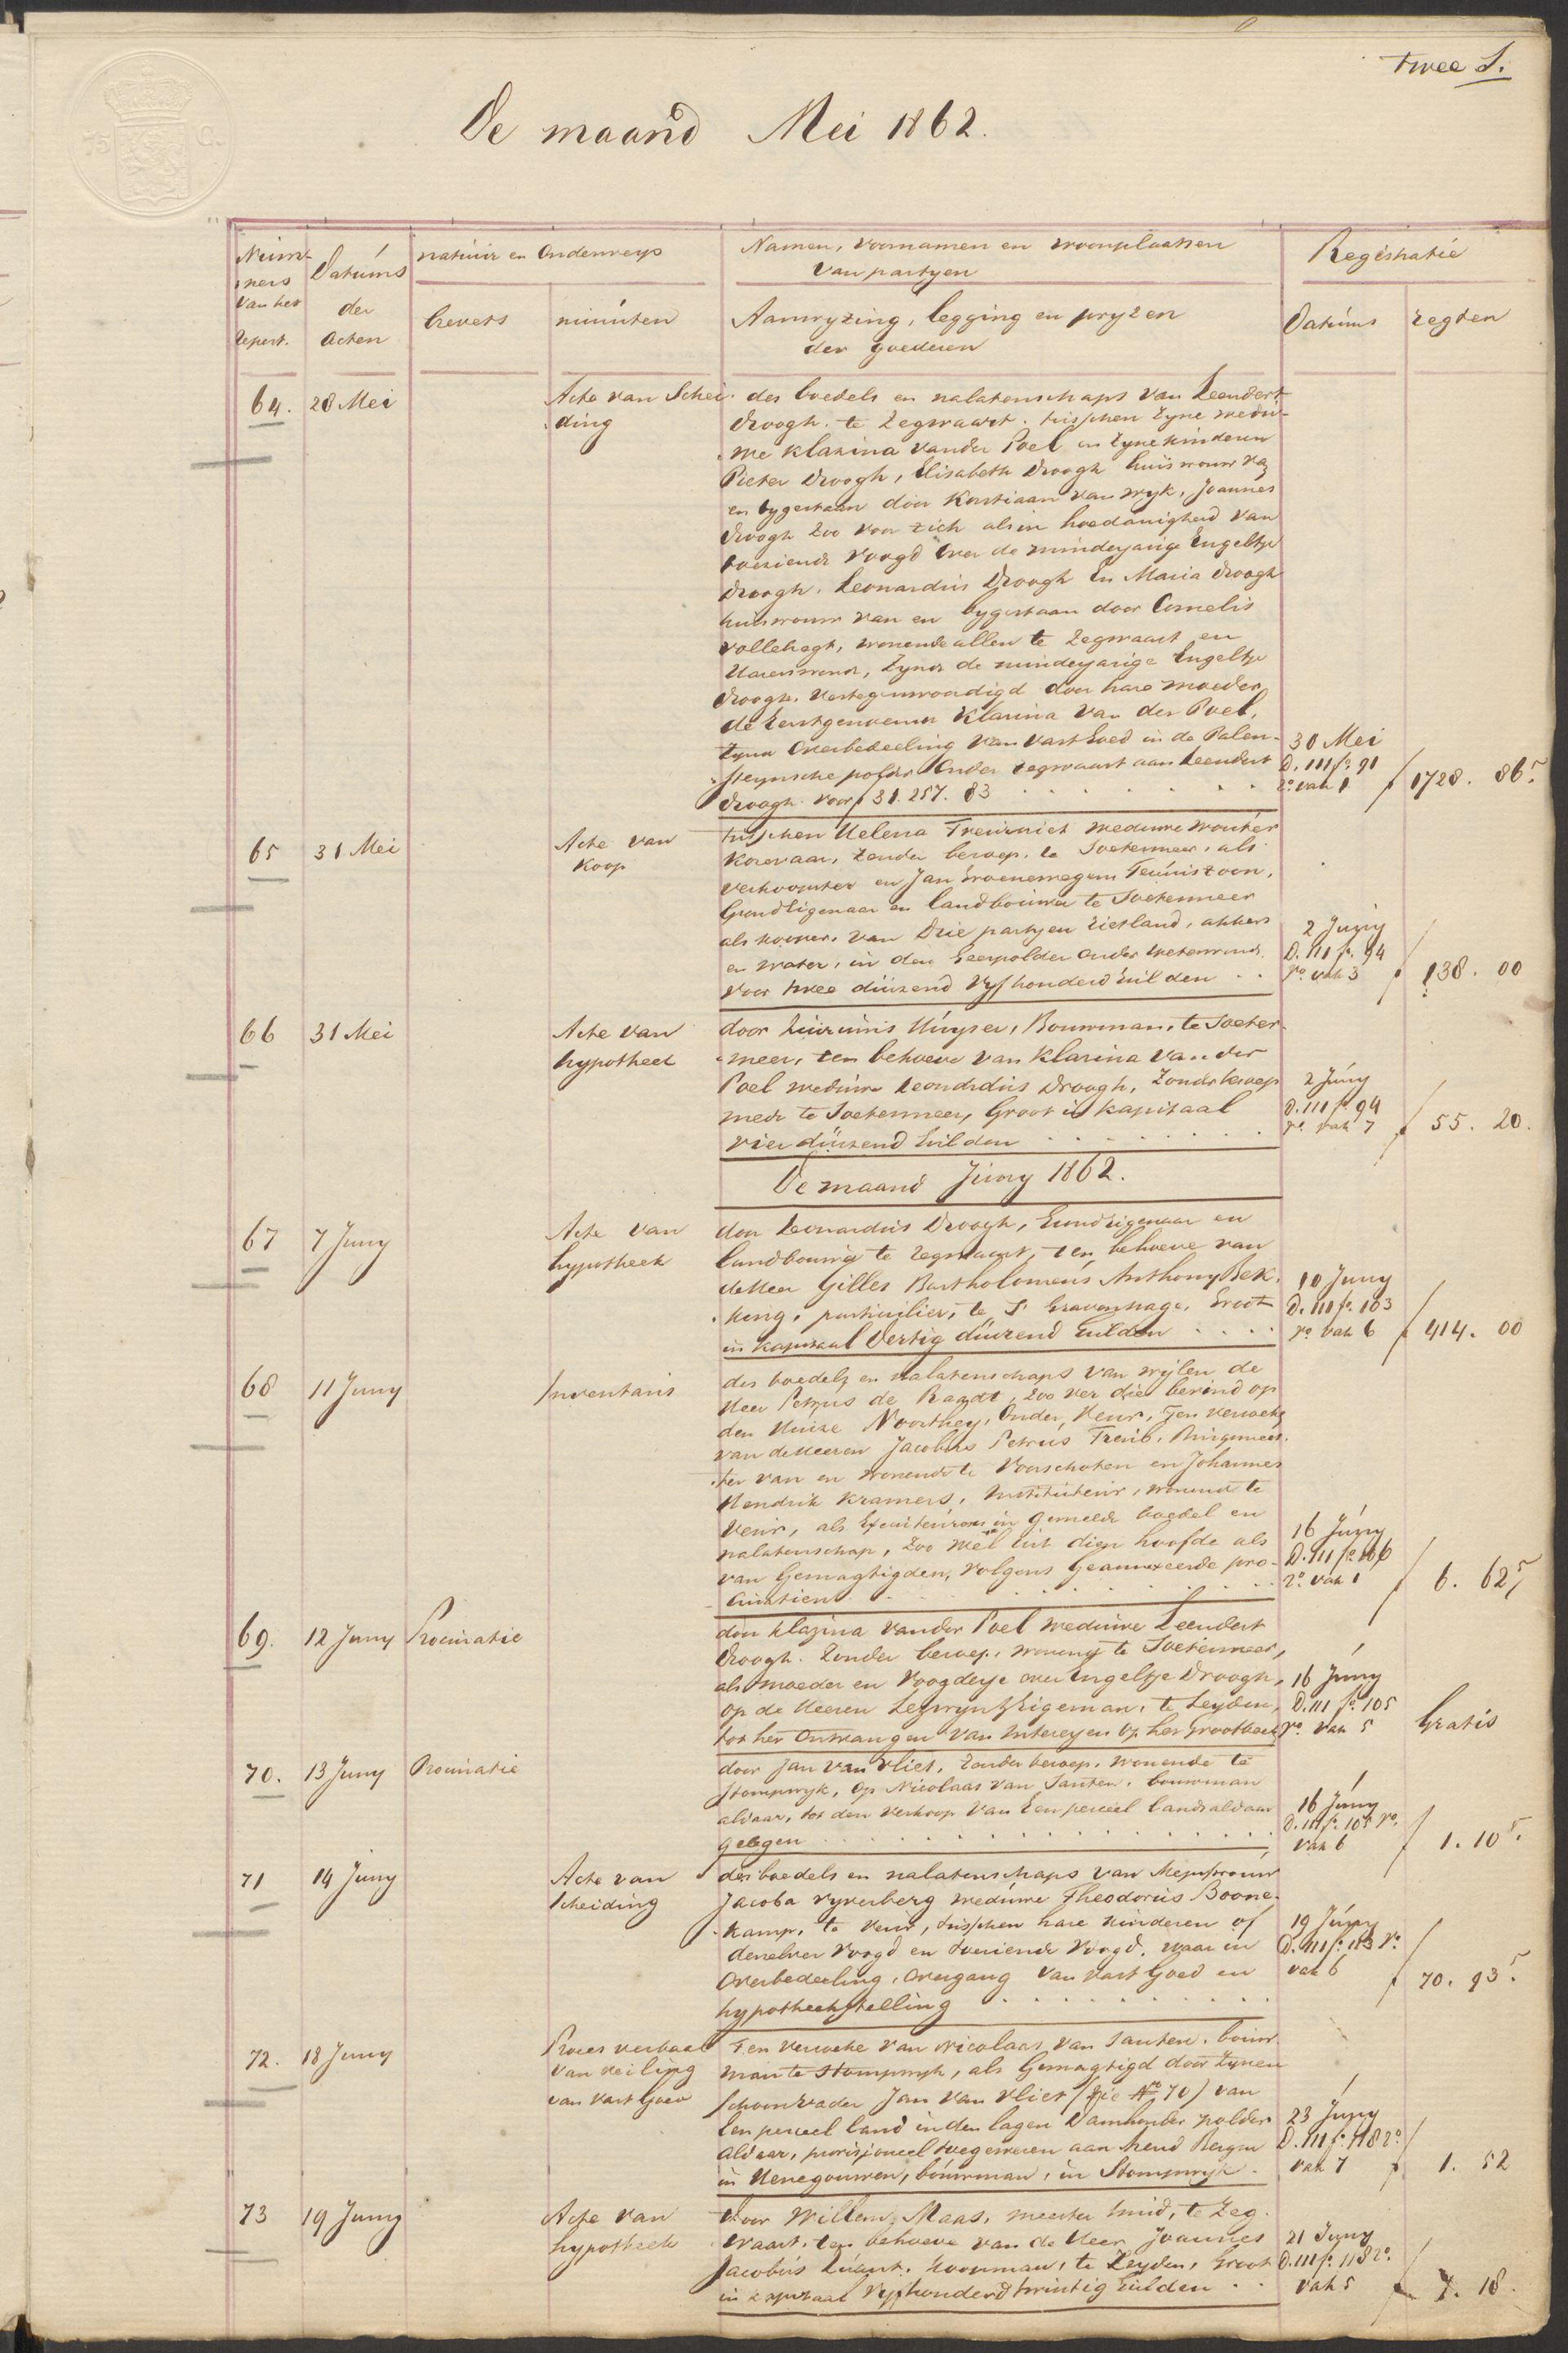 twee S.
De maand Mei 1862.
75 C.
Num-
mers
van het
Repert.
Datums
der
Acten
natuur en Onderwerp
brevets
minuten
Namen, voornamen en woonplaatsen
van partyen
Aanwyzing, legging en pryzen
der goederen
Registratie
Datums
regten
64. 28 Mei
Acte van Schei-
ding
des boedels en nalatenschaps van Leendert
Droogh te Zegwaart, tusschen zyne wedu-
we Klazina vander Poel en zyne kinderen
Pieter Droogh, Elisabeth Droogh huisvrouw van
en bygestaan door Korstiaan van Wyk, Joannes
Droogh zoo voor zich als in hoedanigheid van
toeziende Voogd over de minderjarige Engeltje
Droogh, Leonardus Droogh en Maria Droogh
huisvrouw van en bygestaan door Cornelis
Vollebregt, wonende allen te Zegwaart en
Hazerswoude, Zynde de minderjarige Engeltje
Droogh, vertegenwoordigd door hare moeder
de Eerstgenoemde Klazina van der Poel,
Zynde Overbedeeling van vast Goed in de Palen-
steynsche polder Onder Zegwaart aan Leendert
Droogh voor f 31.257.83
30 Mei
D. 111 fo. 91
ro. vak 1
f 1728. 86 5
65 31 Mei
Acte van
Koop
tusschen Helena Treurniet weduwe Wouter
Korevaar, zonder beroep, te Soetermeer, als
verkoopster en Jan Groenewegen Teuniszoon,
Grondeigenaar en landbouwer te Soetermeer
als kooper, van Drie partyen rietland, akkers
en water, in den Geerpolder onder Soeterwoude
voor twee duizend vyfhonderd Gulden
2 Juny
D. 111 fo. 94
ro. vak 3
f 138. 00
66 31 Mei
Acte van
hypotheek
door Huyser, Bouwman, te Soeter-
meer, ten behoeve van Klazina van der
Poel weduwe Leonardus Droogh, Zonder beroep
mede te Soetermeer, Groot in kapitaal
vier duizend Gulden
2 Juny
D. 111 fo. 94
ro. vak 7
f 55. 20.
De maand Juny 1862.
67 7 Juny
Acte van
hypotheek
door Leonardus Droogh, Grondeigenaar en
landbouwer te Zegwaart, ten behoeve van
de Heer Gilles Bartholomeus Anthony Bek-
king, particulier, te S' Gravenhage, Groot
in kapitaal Dertig duizend Gulden
10 Juny
D. 111 fo. 103
ro. vak 6
f 414. 00
68 11 Juny
Inventaris
des boedels en nalatenschaps van wylen de
Heer Petrus de Raadt, zoo ver die bevind op
den Huize Noorthey, Onder Veur, Ten verzoeke
van de Heeren Jacobus Petrus Treub, Burgemees-
ter van en wonende te Voorschoten en Johannes
Hendrik Kramers, Instituteur, wonende te
Veur, als Executeuren in gemelde boedel en
nalatenschap, zoo wel uit dien hoofde als
van Gemagtigden, volgens Geannexeerde pro-
curatien
16 Juny
D. 111 fo. 106
ro. vak 1
f 6. 62 5
69. 12 Juny Procuratie
door Klazina vander Poel weduwe Leendert
Droogh. Zonder beroep, wonende te Soetermeer,
als moeder en Voogdesse over Engeltje Droogh,
op de Heeren Lezwyn & Eigeman, te Leyden,
tot het Ontvangen van Interessen op het Grootboek
16 Juny
D. 111 fo. 105
ro. vak 5
Gratis
70. 13 Juny Procuratie
door Jan van Vliet, Zonder beroep, wonende te
Stompwyk, op Nicolaas van Santen, bouwman
aldaar, tot den verkoop van Een perceel lands aldaar
gelegen
16 Juny
D. 111 fo. 105 ro.
vak 6
f 1. 10 5.
71 14 Juny
Acte van
Scheiding
des boedels en nalatenschaps van Mejufvrouw
Jacoba Vyverberg weduwe Theodorus Boone-
kamp, te Veur, tusschen hare kinderen of
derzelver Voogd en toeziende Voogd, waar in
Overbedeeling, overgang van vast Goed en
hypotheekstelling
19 Juny
D. 111 fo. 113 vo.
vak 6
f 70. 93 5.
72. 18 Juny
Proces verbaal
van veiling
van vast Goed
Ten verzoeke van Nicolaas van Santen, bouw-
man te Stompwyk, als Gemagtigd door Zynen
Schoonvader Jan van Vliet (zie No 70) van
Een perceel land in den lagen Damhouder polder
aldaar, provisioneel toegewezen aan Bergen
in Henegouwen, bouwman, in Stompwyk.
23 Juny
D. 111 fo. 118 ro.
vak 7
f 1. 52
73 19 Juny
Acte van
hypotheek
door Willem Maas, meester Smid, te Zeg-
waart, ten behoeve van de Heer Joannes
Jacobus Zwart, Koopman, te Leyden, Groot
in kapitaal Vyfhonderd twintig Gulden
21 Juny
D. 111 fo. 118 ro.
vak 5
f 7. 18.